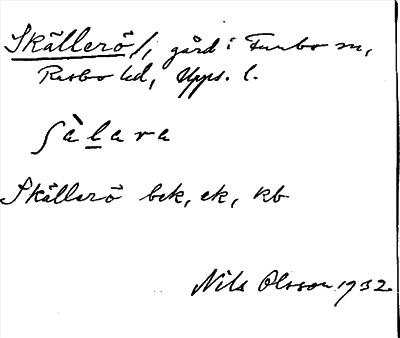 Skällerö /, gård i Funbo sn,
Rasbo hd, Upps. l.
ʃàlara
Skällerö bek, ek, kb
Nils Olsson 1932